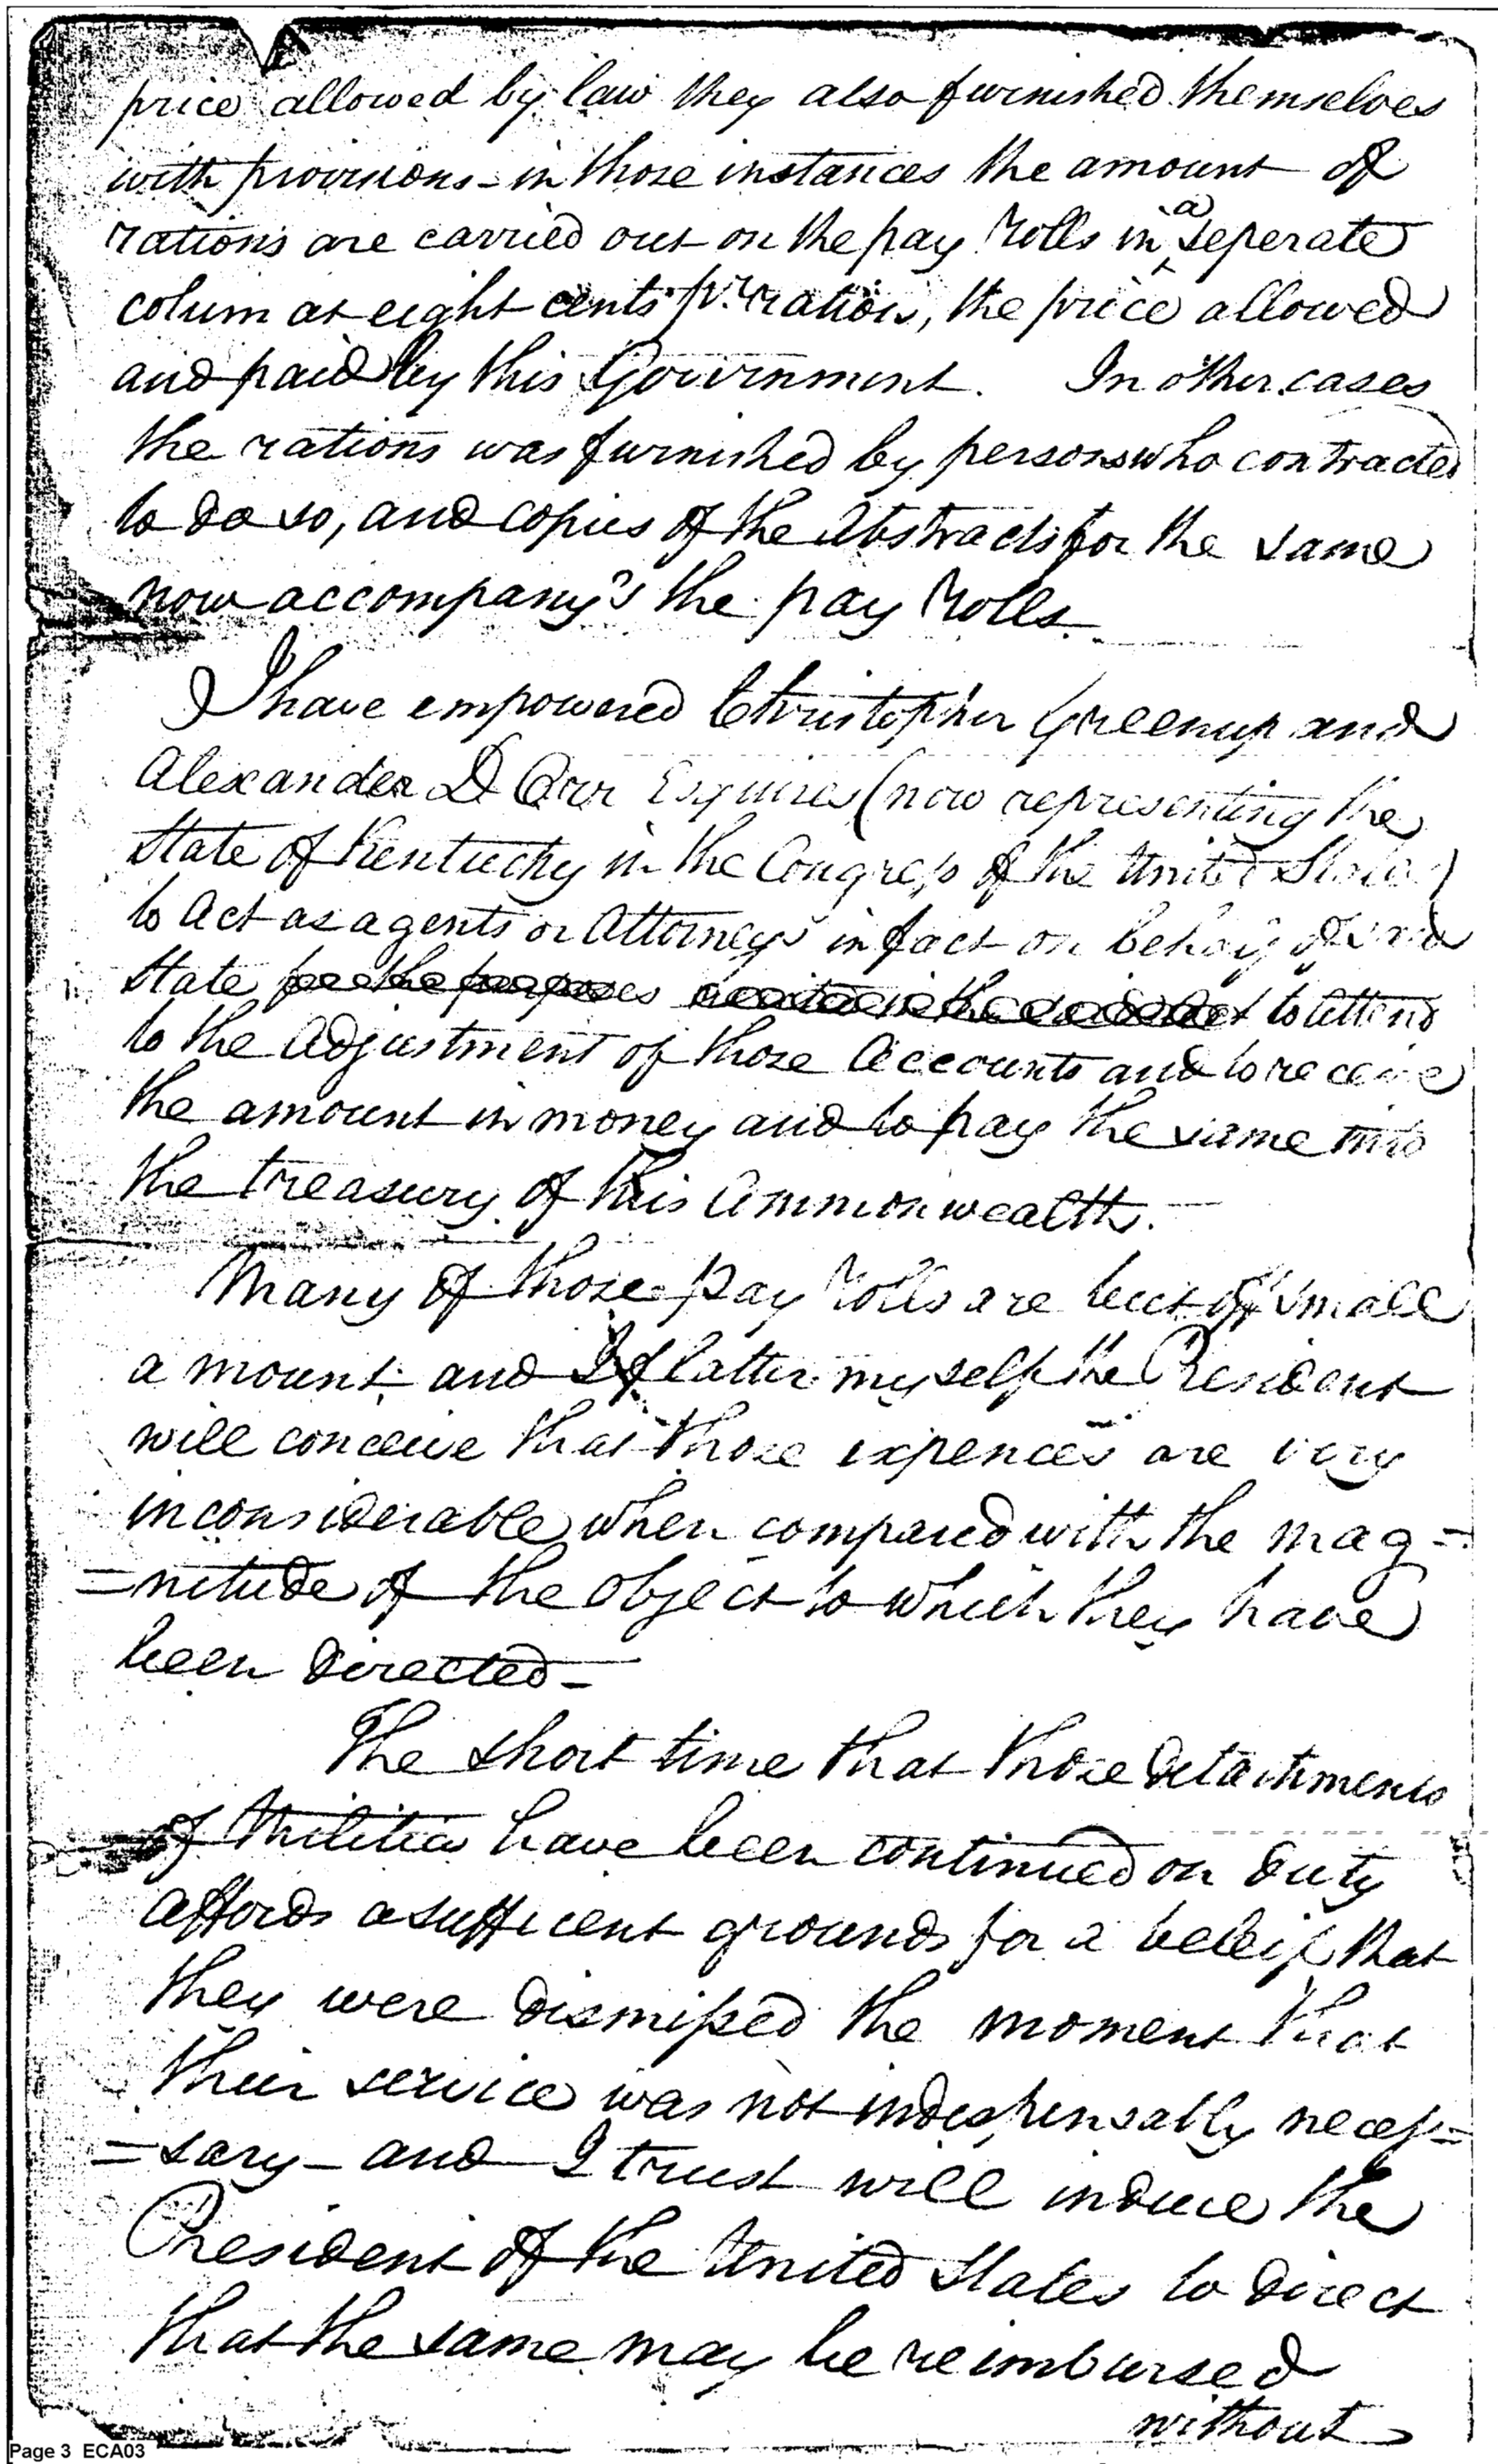 price allowed by law they also furnished themselves
with provisions - in those instances the amount of
rations are carried out on the pay rolls in a seperate
colum at eight cents pr. ration, the price allowed
and paid by this Government. In other cases
the rations was furnished by persons who contracted
to do so, and copies of the abstracts for the same
now accompany's the pay rolls.
I have empowered Christopher Greenup and
Alexander D Orr Esquires (now representing the
State of Kentucky in the Congress of the United States)
to Act as agents or Attorneys in fact on behalf of said
State for the purposes recited in the said Act to attend
to the adjustment of those accounts and to receive
the amount in money and to pay the same into
the treasury of this Commonwealth. -
Many of those pay rolls are but of small
amount and I flatter myself the President
will conceive that those expences are very
inconsiderable when compared with the mag=
=nitude of the object to which they have
been directed -
The short time that those detachments
of Militia have been continued on duty
affords a sufficient grounds for a beleif that
they were dismissed the moment that
their service was not indespensably neces=
=sary - and I trust will induce the
President of the United States to direct
that the same may be reimbursed
without
Page 3 ECA03